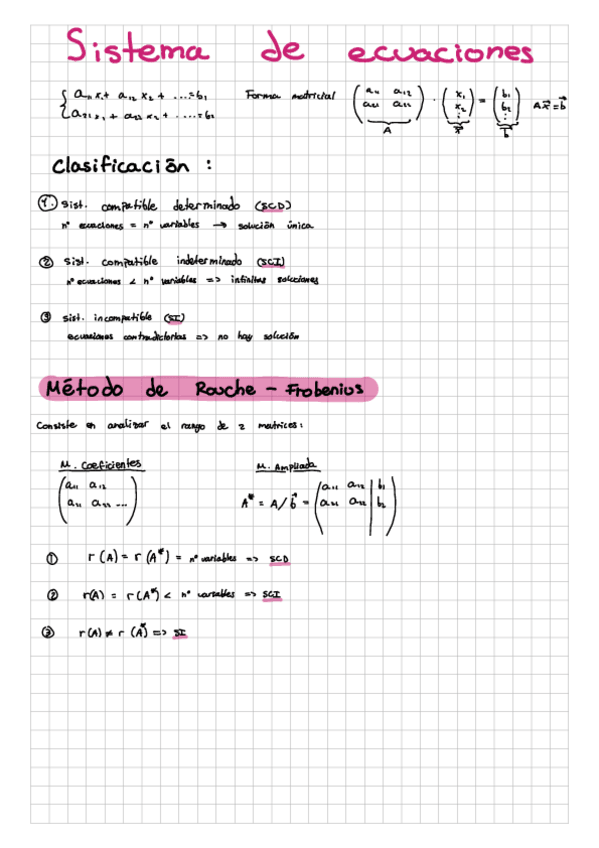 Sistema de ecuaciones
{ a11 x1 + a12 x2 + ... = b1
a21 x1 + a22 x2 + .... = b2
Forma matricial ( a11 a12 a21 a22 ) · ( x1 x2 ⋮ ) = ( b1 b2 ⋮ ) A x⃗ = b⃗
A x⃗ b⃗
Clasificación :
1. Sist. compatible determinado (SCD)
nº ecuaciones = nº variables → solución única
② Sist. compatible indeterminado (SCI)
nº ecuaciones < nº variables => infinitas soluciones
③ Sist. incompatible (SI)
ecuaciones contradictorias => no hay solución
Método de Rouche - Frobenius
Consiste en analizar el rango de 2 matrices:
M. Coeficientes M. Ampliada
( a11 a12
a21 a22 ... )
A* = A/b⃗ = ( a11 a12 | b1
a21 a22 | b2 )
① r (A) = r (A*) = nº variables => SCD
② r(A) = r(A*) < nº variables => SCI
③ r(A) ≠ r (A*) => SI